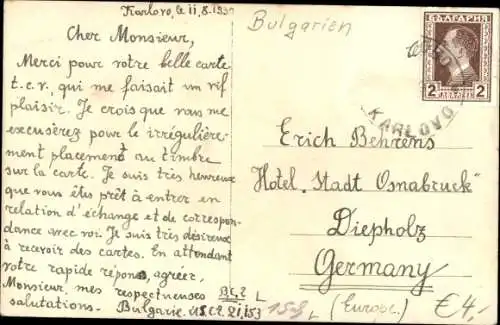 Karlovo, le 11.8.193
Bulgarien
Cher Monsieur,
Merci pour votre belle carte
t.c.v., qui me faisait un vif
plaisir. Je crois que vous me
excuserez pour le irrégulière-
ment placement au timbre
sur la carte. Je suis très heureuse
que vous êtes prêt à entrer en
relation d'échange et de correspon-
dance avec voi. Je suis très désireux
à recevoir des cartes. En attendant
votre rapide répons, agréez,
Monsieur, mes respectueuses
salutations.
Bulgarie.
БЪЛГАРИЯ
2 ЛЕВА 2
KARLOVO
Erich Behrens
Hotel „Stadt Osnabruck"
Diepholz
Germany
(Europe.)
€4,-